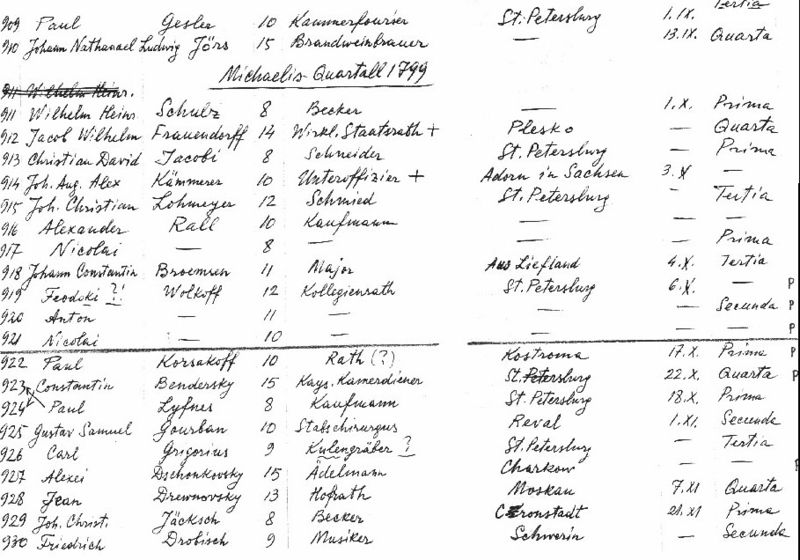 Tertia
909 Paul Gesler 10 Kammerfourier St. Petersburg 1.IX.
910 Johann Nathanael Ludwig Jörs 15 Brandweinbrauer — 13.IX. Quarta
Michaelis-Quartall 1799
911 Wilhelm Heinr.
911 Wilhelm Heinr. Schulz 8 Becker — 1.X. Prima
912 Jacob Wilhelm Frauendorff 14 Wirkl. Staatsrath + Plesko — Quarta
913 Christian David Jacobi 8 Schneider St. Petersburg — Prima
914 Joh. Aug. Alex Kämmerer 10 Unteroffizier + Adorn in Sachsen 3.X —
915 Joh. Christian Lohmeyer 12 Schmied St. Petersburg - Tertia
916 Alexander Rall 10 Kaufmann — — —
917 Nicolai — 8 — — — Prima
918 Johann Constantin Broemsen 11 Major Aus Liefland 4.X. Tertia
919 Feodski ?! Wolkoff 12 Kollegienrath St. Petersburg 6.X. — P
920 Anton — 11 — — — Secunda P
921 Nicolai — 10 — — — — P
922 Paul Korsakoff 10 Rath (?) Kostroma 17.X. Prima P
923 Constantin Bendersky 15 Kays. Kamerdiener St. Petersburg 22.X. Quarta P
924 Paul Lyfnes 8 Kaufmann St. Petersburg 18.X. Prima
925 Gustav Samuel Gourban 10 Stabschirurgus Reval 1.XI. Secunda
926 Carl Grigorius 9 Kulengräber ? St. Petersburg — Tertia
927 Alexei Dschonkovsky 15 Adelmann Charkow — — P
928 Jean Drewnovsky 13 Hofrath Moskau 7.XI Quarta
929 Joh. Christ. Jäcksch 8 Becker Cronstadt 21.XI Prima
930 Friedrich Drobisch 9 Musiker Schwerin — Secunda